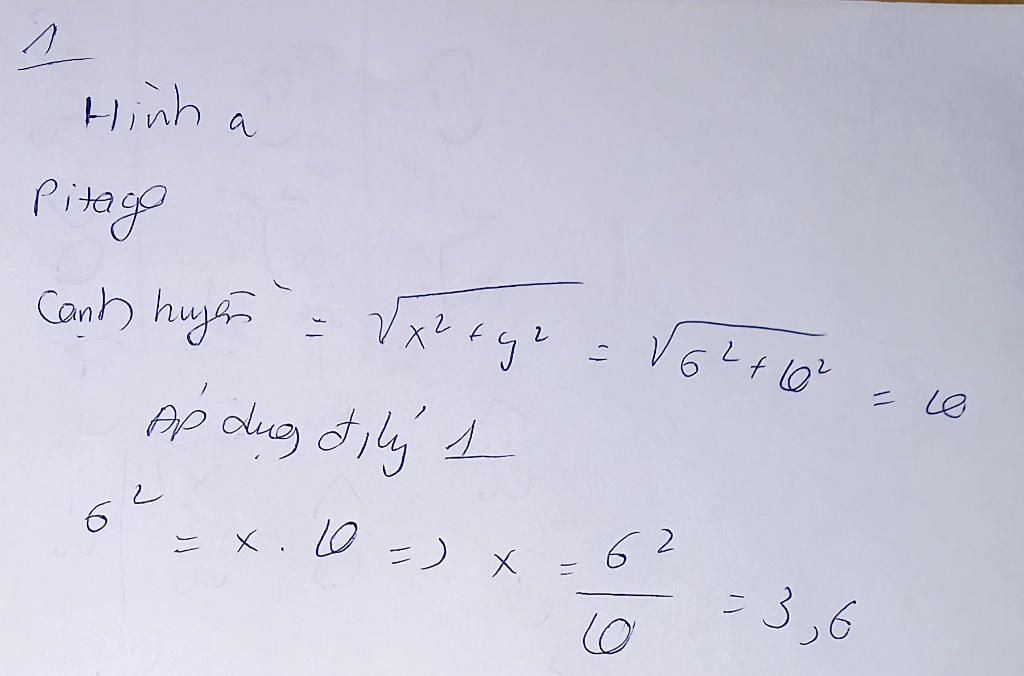 1
Hình a
Pitago
Cạnh huyền = √x² + y² = √6² + 10² = 10
Áp dụng đ,lý 1
6² = x . 10 => x = 6²/10 = 3,6